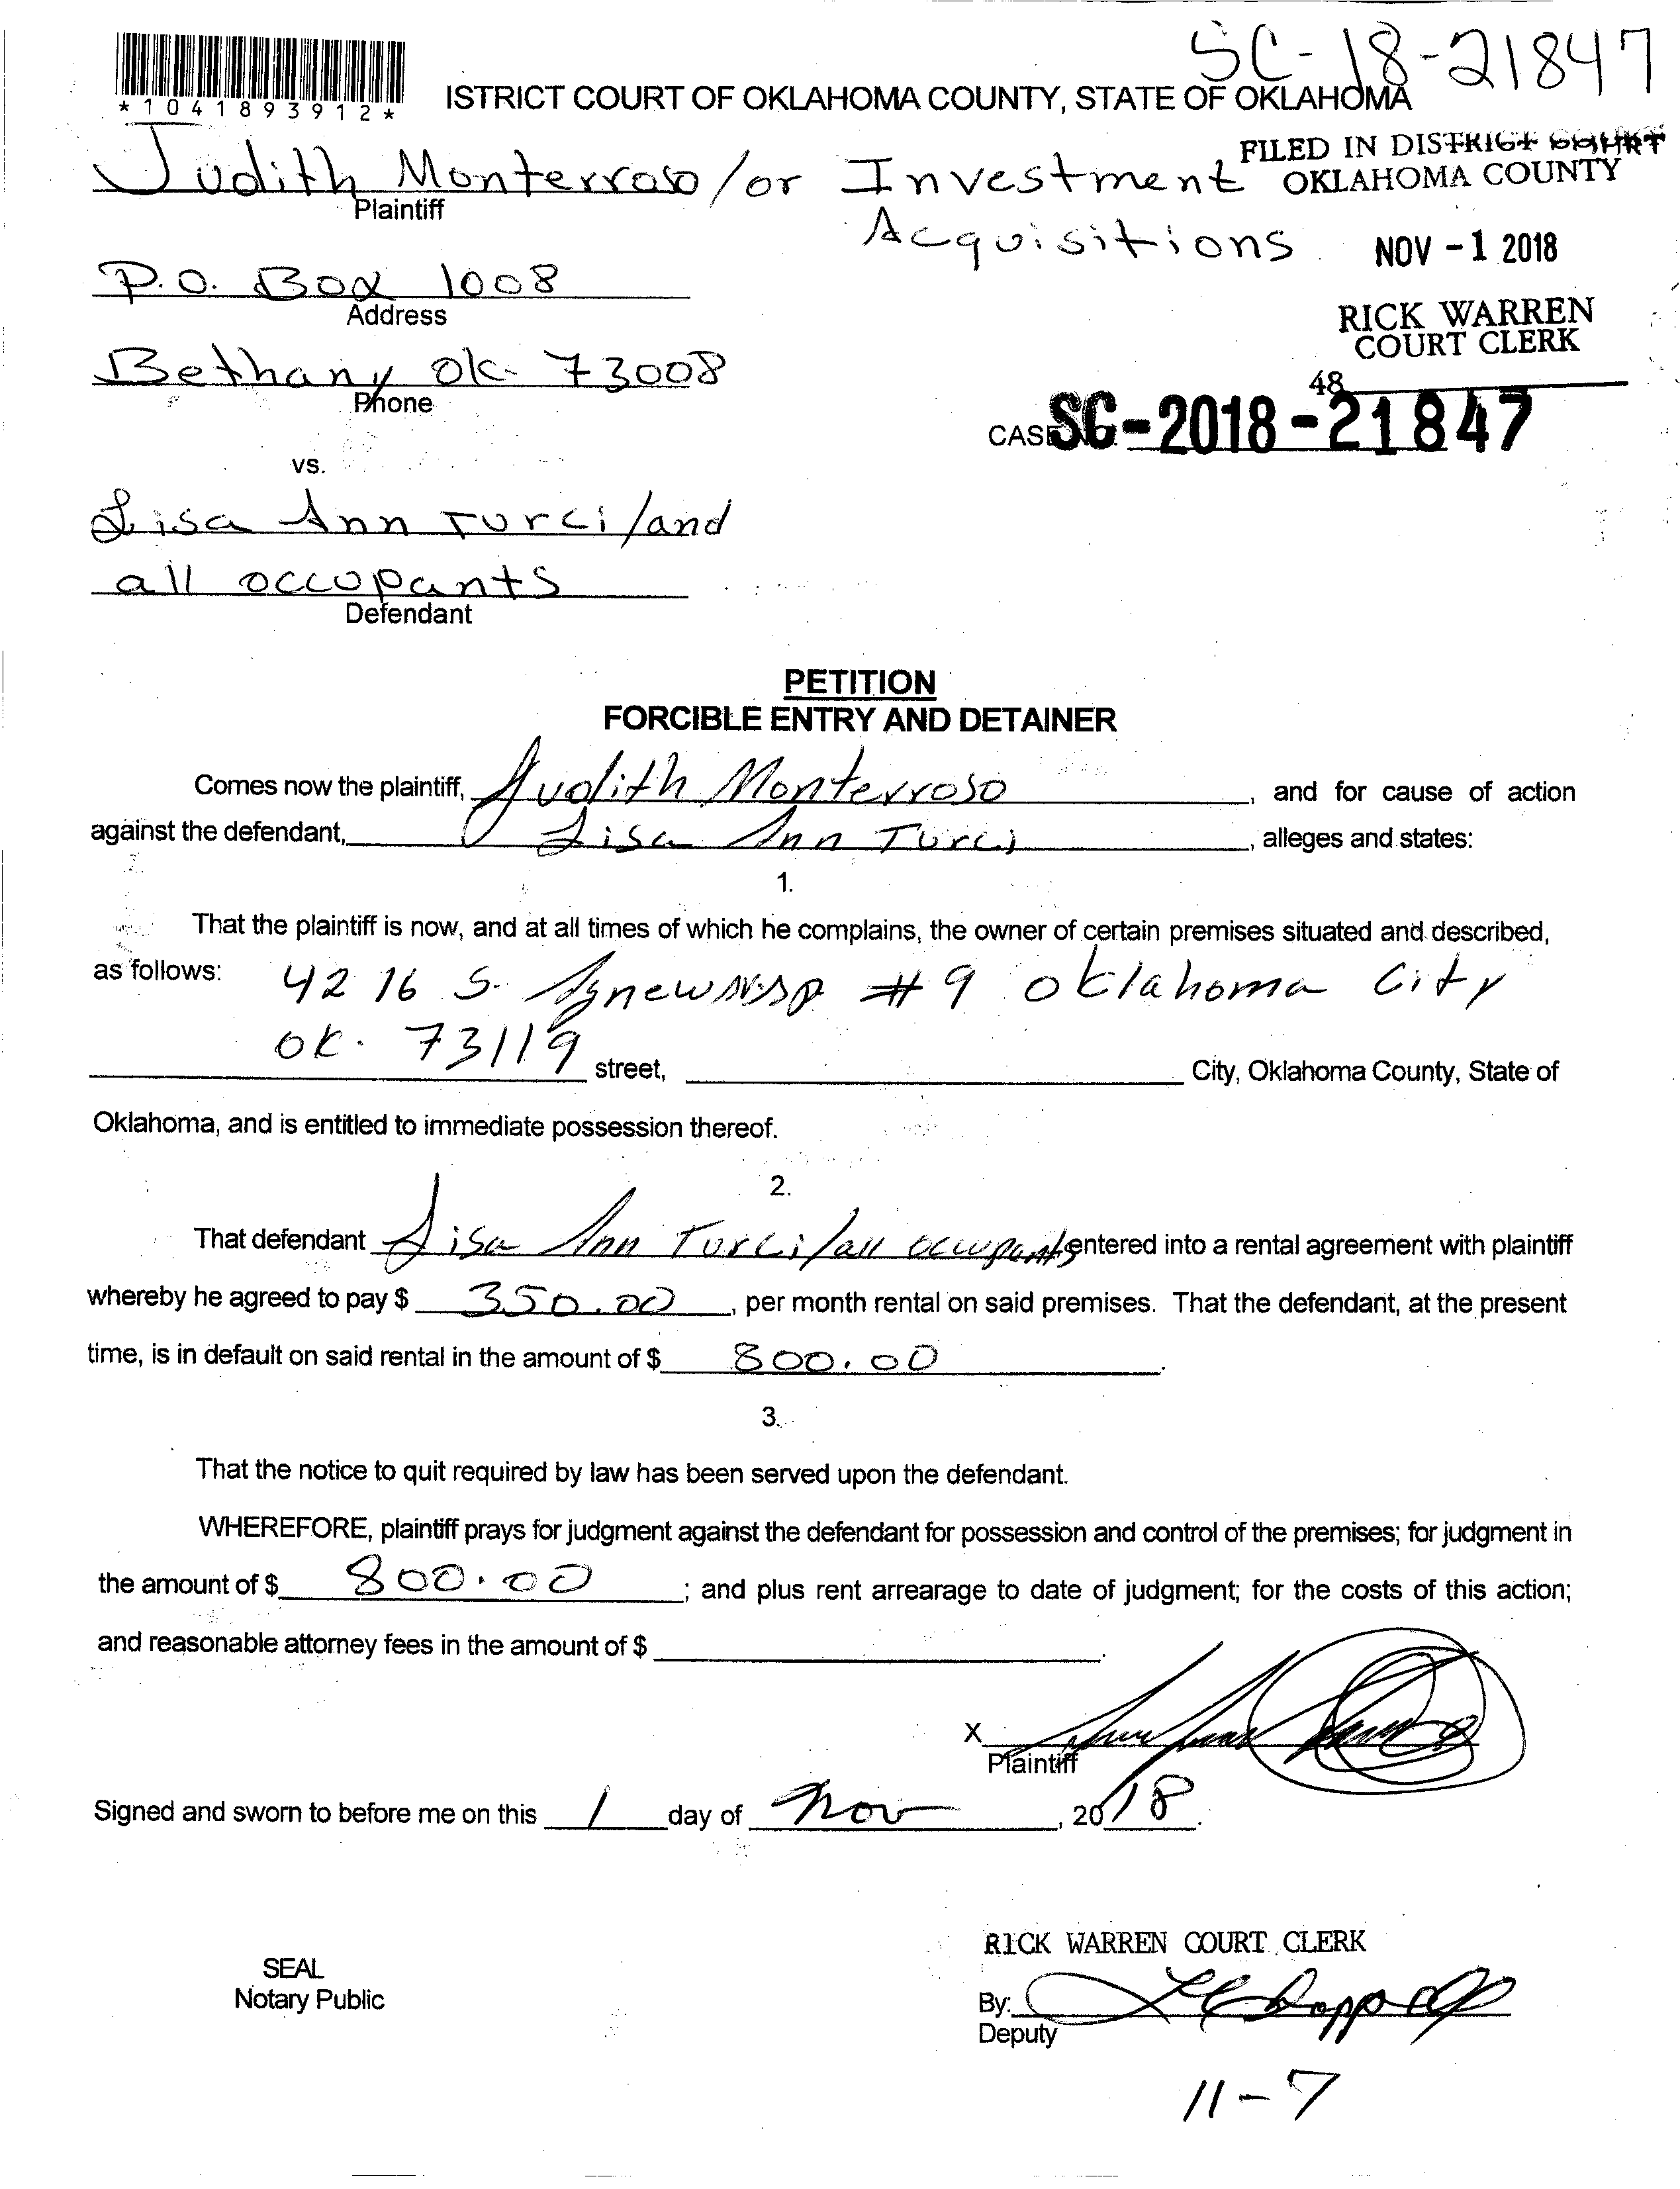 SC-18-21847
*1041893912*
ISTRICT COURT OF OKLAHOMA COUNTY, STATE OF OKLAHOMA
FILED IN DISTRICT COURT
OKLAHOMA COUNTY
Judith Monterroso/or Investment
Plaintiff
Acquisitions
NOV -1 2018
P.O. Box 1008
Address
RICK WARREN
COURT CLERK
Bethany Ok. 73008
Phone
48
CASE SC-2018-21847
vs.
Lisa Ann Turci/and
all occupants
Defendant
PETITION
FORCIBLE ENTRY AND DETAINER
Comes now the plaintiff, Judith Monterroso, and for cause of action
against the defendant, Lisa Ann Turci, alleges and states:
1.
That the plaintiff is now, and at all times of which he complains, the owner of certain premises situated and described,
as follows: 4216 S. #9 Oklahoma City
OK. 73119 street, City, Oklahoma County, State of
Oklahoma, and is entitled to immediate possession thereof.
2.
That defendant Lisa Ann Turci/all occupants entered into a rental agreement with plaintiff
whereby he agreed to pay $ 350.00, per month rental on said premises. That the defendant, at the present
time, is in default on said rental in the amount of $ 800.00.
3.
That the notice to quit required by law has been served upon the defendant.
WHEREFORE, plaintiff prays for judgment against the defendant for possession and control of the premises; for judgment in
the amount of $ 800.00; and plus rent arrearage to date of judgment; for the costs of this action;
and reasonable attorney fees in the amount of $ .
X
Plaintiff
Signed and sworn to before me on this 1 day of Nov, 2018.
RICK WARREN COURT CLERK
SEAL
Notary Public
By:
Deputy
11-7